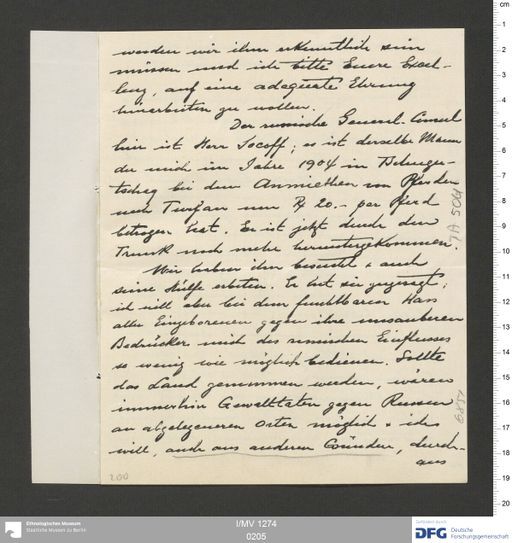 werden wir ihm erkenntlich sein
müssen und ich bitte Eure Excel-
lenz, auf eine adequate Ehrung
hinarbeiten zu wollen.
Der russische General-Consul
hier ist Herr Socoff; es ist derselbe Mann
der mich im Jahre 1904 in Tschugu-
tschag bei dem Anmiethen von Pferden
nach Turfan um R 20.- per Pferd
betrogen hat. Er ist jetzt durch den
Trunk noch mehr heruntergekommen.
Wir haben ihn besucht & auch
seine Hülfe erbeten. Er hat sie zugesagt;
ich will aber bei dem furchtbaren Hass
aller Eingeborenen gegen ihre unsauberen
Bedrücker mich des russischen Einflusses
so wenig wie möglich bedienen. Sollte
das Land genommen werden, wären
immerhin Gewalttaten gegen Russen
an abgelegeneren Orten möglich & ich
will, auch aus anderen Gründen, durch-
aus
200
Ethnologisches Museum
Staatliche Museen zu Berlin
I/MV 1274
0205
DFG
Deutsche
Forschungsgemeinschaft
cm
1
2
3
4
5
6
7
8
9
10
11
12
13
14
15
16
17
18
19
20